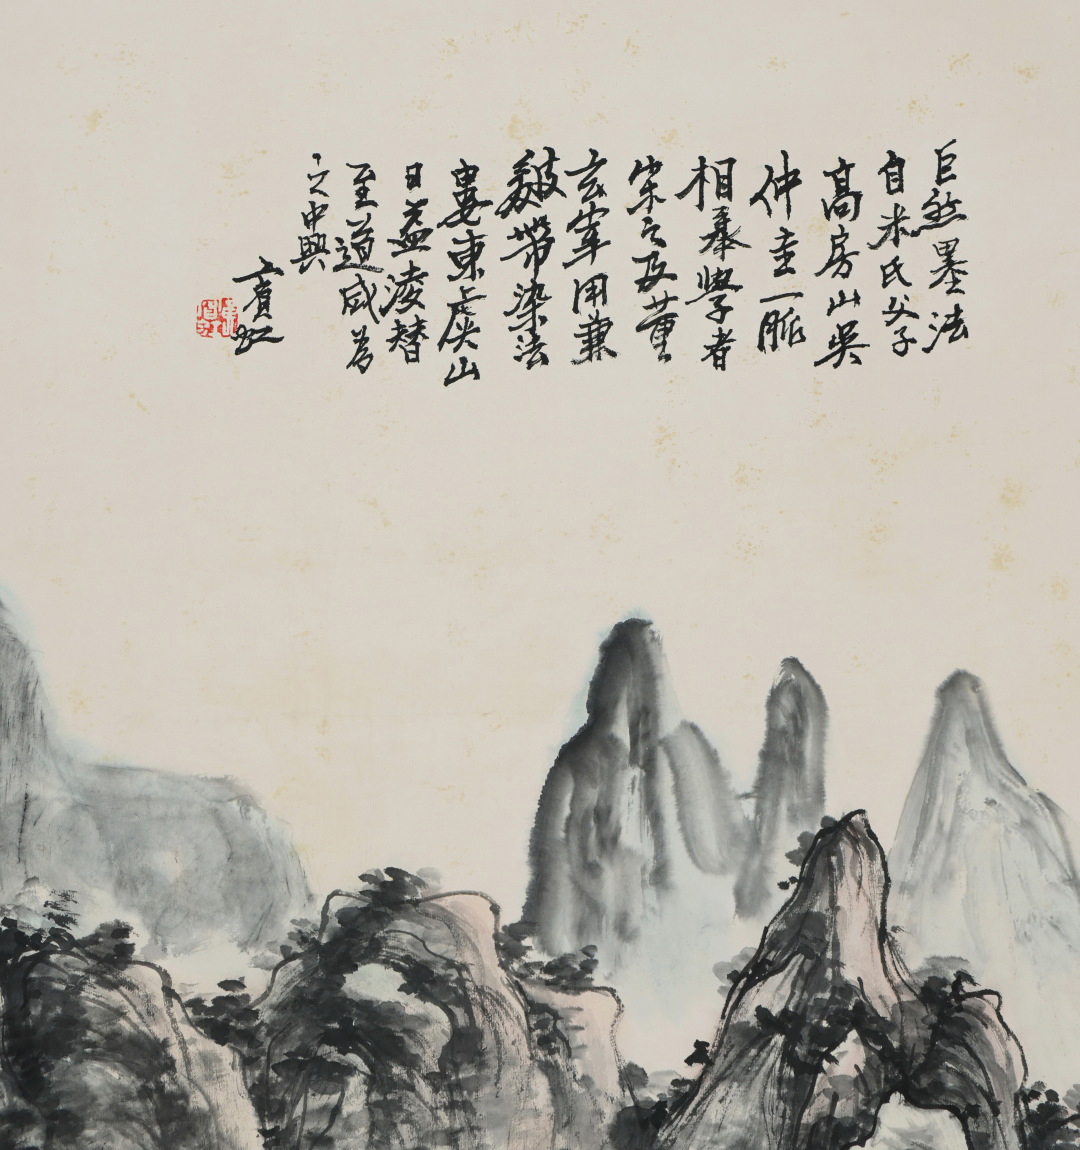 巨然墨法
自米氏父子
高房山吳
仲圭一脈
相承學者
宗之及董
玄宰用兼
皴帶染法
婁東虞山
日益凌替
至道咸為
之中興
賓虹